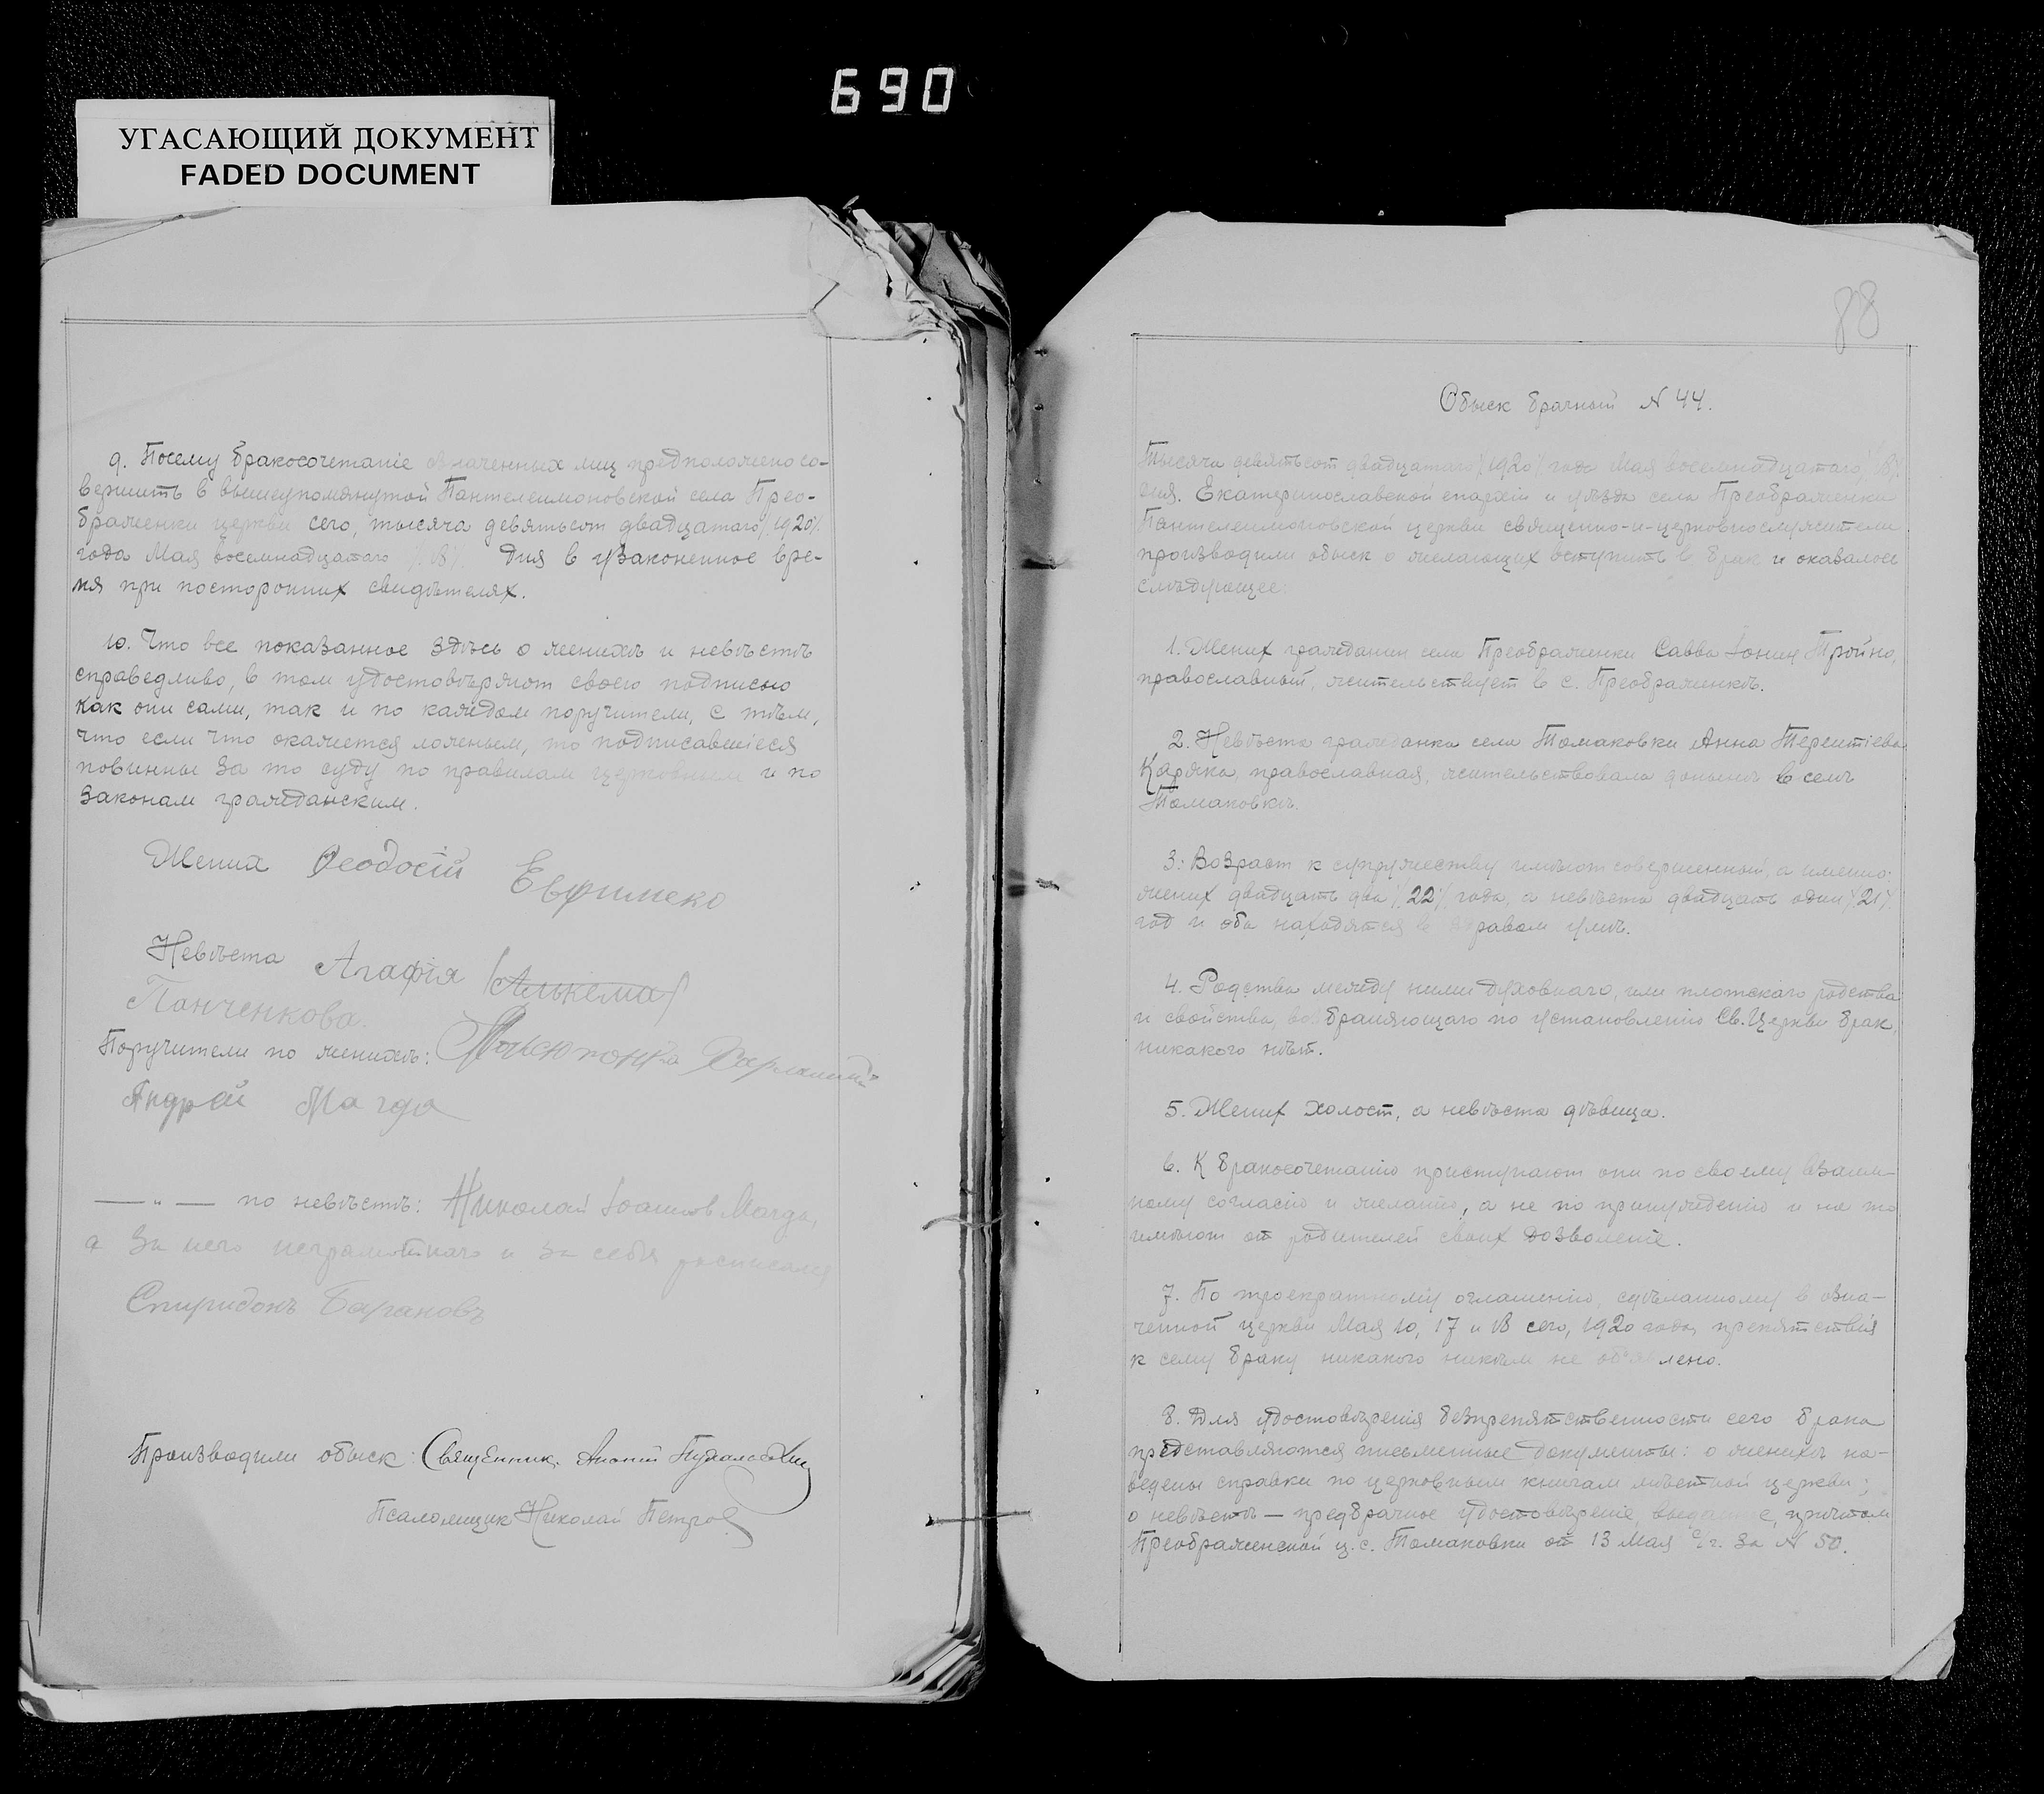 690
УГАСАЮЩИЙ ДОКУМЕНТ
FADED DOCUMENT
9. Посему бракосочетаніе означенных лиц предположено со-
вершить в вышеупомянутой Пантелеимоновской села Прео-
браженки церкви сего, тысяча девятьсот двадцатаго /1920/
года Мая восемнадцатаго /18/ дня в узаконенное вре-
мя при посторонних свидѣтелях.
10. Что все показанное здѣсь о женихѣ и невѣстѣ
справедливо, в том удостовѣряют своею подписью
как они сами, так и по каждом поручители, с тѣм,
что если что окажется ложным, то подписавшіеся
повинны за то суду по правилам церковным и по
законам гражданским.
Жених Феодосій
Невѣста Агафія
Панченкова.
Поручители по женихѣ:
Андрей Магда
— " — по невѣстѣ: Николай Іоаннов Магда,
а за него неграмотнаго и за себя росписался
Спиридонъ Барановъ
Производили обыск: Священник
Псаломщик Николай Петров
88
Обыск брачный N 44.
Тысяча девятьсот двадцатаго /1920/ года Мая восемнадцатаго /18/
дня. Екатеринославской епархіи и уѣзда села Преображенки
Пантелеимоновской церкви священно-и-церковнослужители
производили обыск о желающих вступить в брак и оказалось
слѣдующее:
1. Жених гражданин села Преображенки Савва Іонин Тройно,
православный, жительствует в с. Преображенкѣ.
2. Невѣста гражданка села Томаковки Анна Терентіева
Каряка, православная, жительствовала донынѣ в селѣ
Томаковкѣ.
3. Возраст к супружеству имѣют совершенный, а именно:
жених двадцать два /22/ года, а невѣста двадцать один /21/
год и оба находятся в здравом умѣ.
4. Родства между ними духовнаго, или плотскаго родства
и свойства, возбраняющаго по установленію Св. Церкви брак,
никакого нѣт.
5. Жених холост, а невѣста дѣвица.
6. К бракосочетанію приступают они по своему взаим-
ному согласію и желанію, а не по принужденію и на то
имѣют от родителей своих дозволеніе.
7. По троекратному оглашенію, сдѣланному в озна-
ченной церкви Мая 10, 17 и 18 сего, 1920 года, препятствія
к сему браку никакого никѣм не объявлено.
8. Для удостовѣренія безпрепятственности сего брака
представляются письменные документы: о женихѣ на-
ведены справки по церковным книгам мѣстной церкви;
о невѣстѣ — предбрачное удостовѣреніе, выдан е, причтом
Преображенской ц. с. Томаковки от 13 Мая с/г. за N 50.